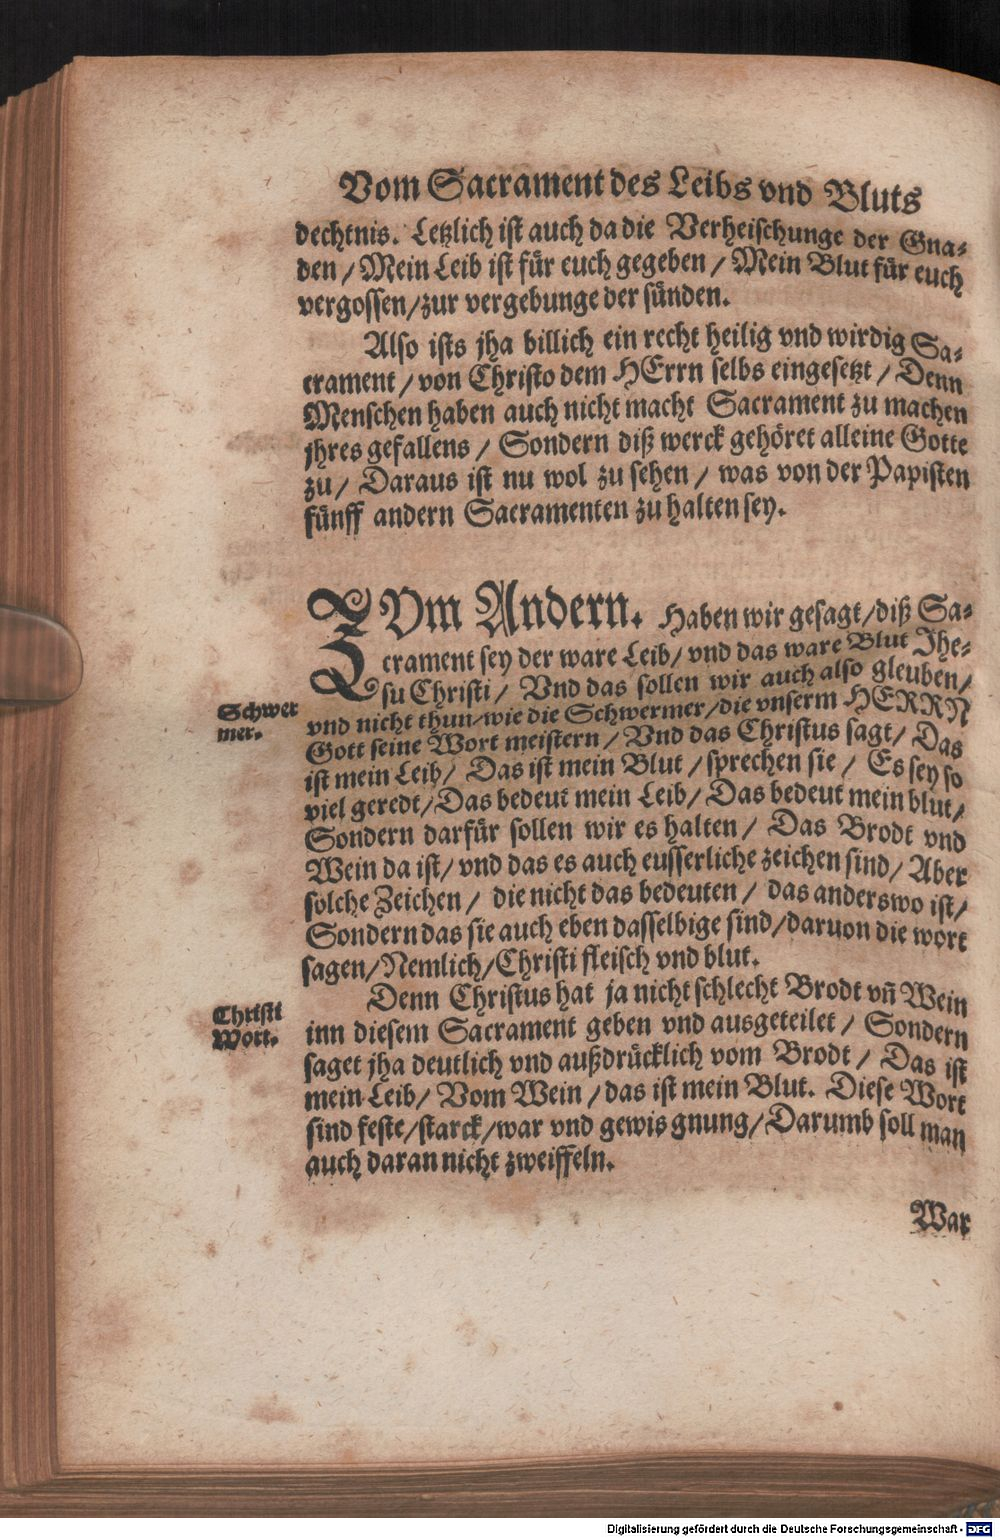 Vom Sacrament des Leibs vnd Bluts
dechtnis. Letzlich ist auch da die Verheischunge der Gna-
den / Mein Leib ist für euch gegeben / Mein Blut für euch
vergossen / zur vergebunge der sünden.
Also ists jha billich ein recht heilig vnd wirdig Sa-
crament / von Christo dem HErrn selbs eingesetzt / Denn
Menschen haben auch nicht macht Sacrament zu machen
jhres gefallens / Sondern diß werck gehöret alleine Gotte
zu / Daraus ist nu wol zu sehen / was von der Papisten
fünff andern Sacramenten zu halten sey.
ZVm Andern. Haben wir gesagt / diß Sa-
crament sey der ware Leib / vnd das ware Blut Jhe-
su Christi / Vnd das sollen wir auch also gleuben /
Schwer
mer.
vnd nicht thun / wie die Schwermer / die vnserm HERRN
Gott seine Wort meistern / Vnd das Christus sagt / Das
ist mein Leib / Das ist mein Blut / sprechen sie / Es sey so
viel geredt / Das bedeut mein Leib / Das bedeut mein blut /
Sondern darfür sollen wir es halten / Das Brodt vnd
Wein da ist / vnd das es auch eusserliche zeichen sind / Aber
solche Zeichen / die nicht das bedeuten / das anderswo ist /
Sondern das sie auch eben dasselbige sind / daruon die wort
sagen / Nemlich / Christi fleisch vnd blut.
Denn Christus hat ja nicht schlecht Brodt vñ Wein
Christi
Wort.
inn diesem Sacrament geben vnd ausgeteilet / Sondern
saget jha deutlich vnd außdrücklich vom Brodt / Das ist
mein Leib / Vom Wein / das ist mein Blut. Diese Wort
sind feste / starck / war vnd gewis gnung / Darumb soll man
auch daran nicht zweiffeln.
War
Digitalisierung gefördert durch die Deutsche Forschungsgemeinschaft - DFG